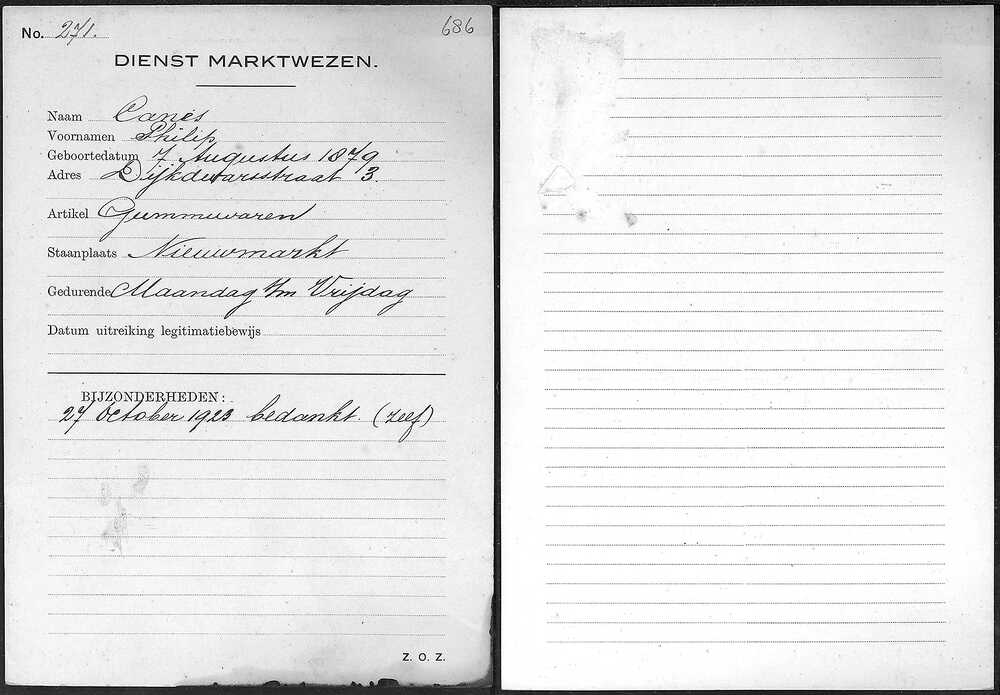 No. 271.
686
DIENST MARKTWEZEN.
Naam Canes
Voornamen Philip
Geboortedatum 7 Augustus 1879
Adres Dijkdwarsstraat 3
Artikel Gummiwaren
Staanplaats Nieuwmarkt
Gedurende Maandag t/m Vrijdag
Datum uitreiking legitimatiebewijs
BIJZONDERHEDEN:
27 October 1923 bedankt (zelf)
Z. O. Z.